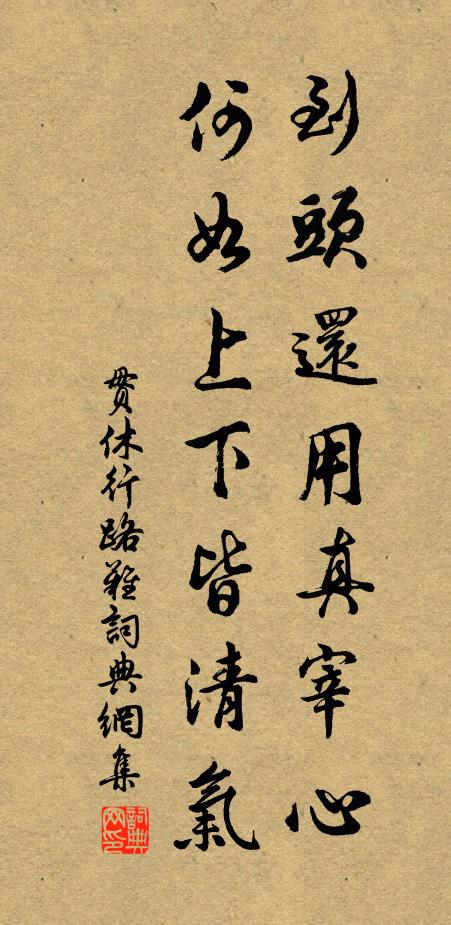 到頭還用真宰心
何如上下皆清氣
貫休行路難詞典網集
詞典网印